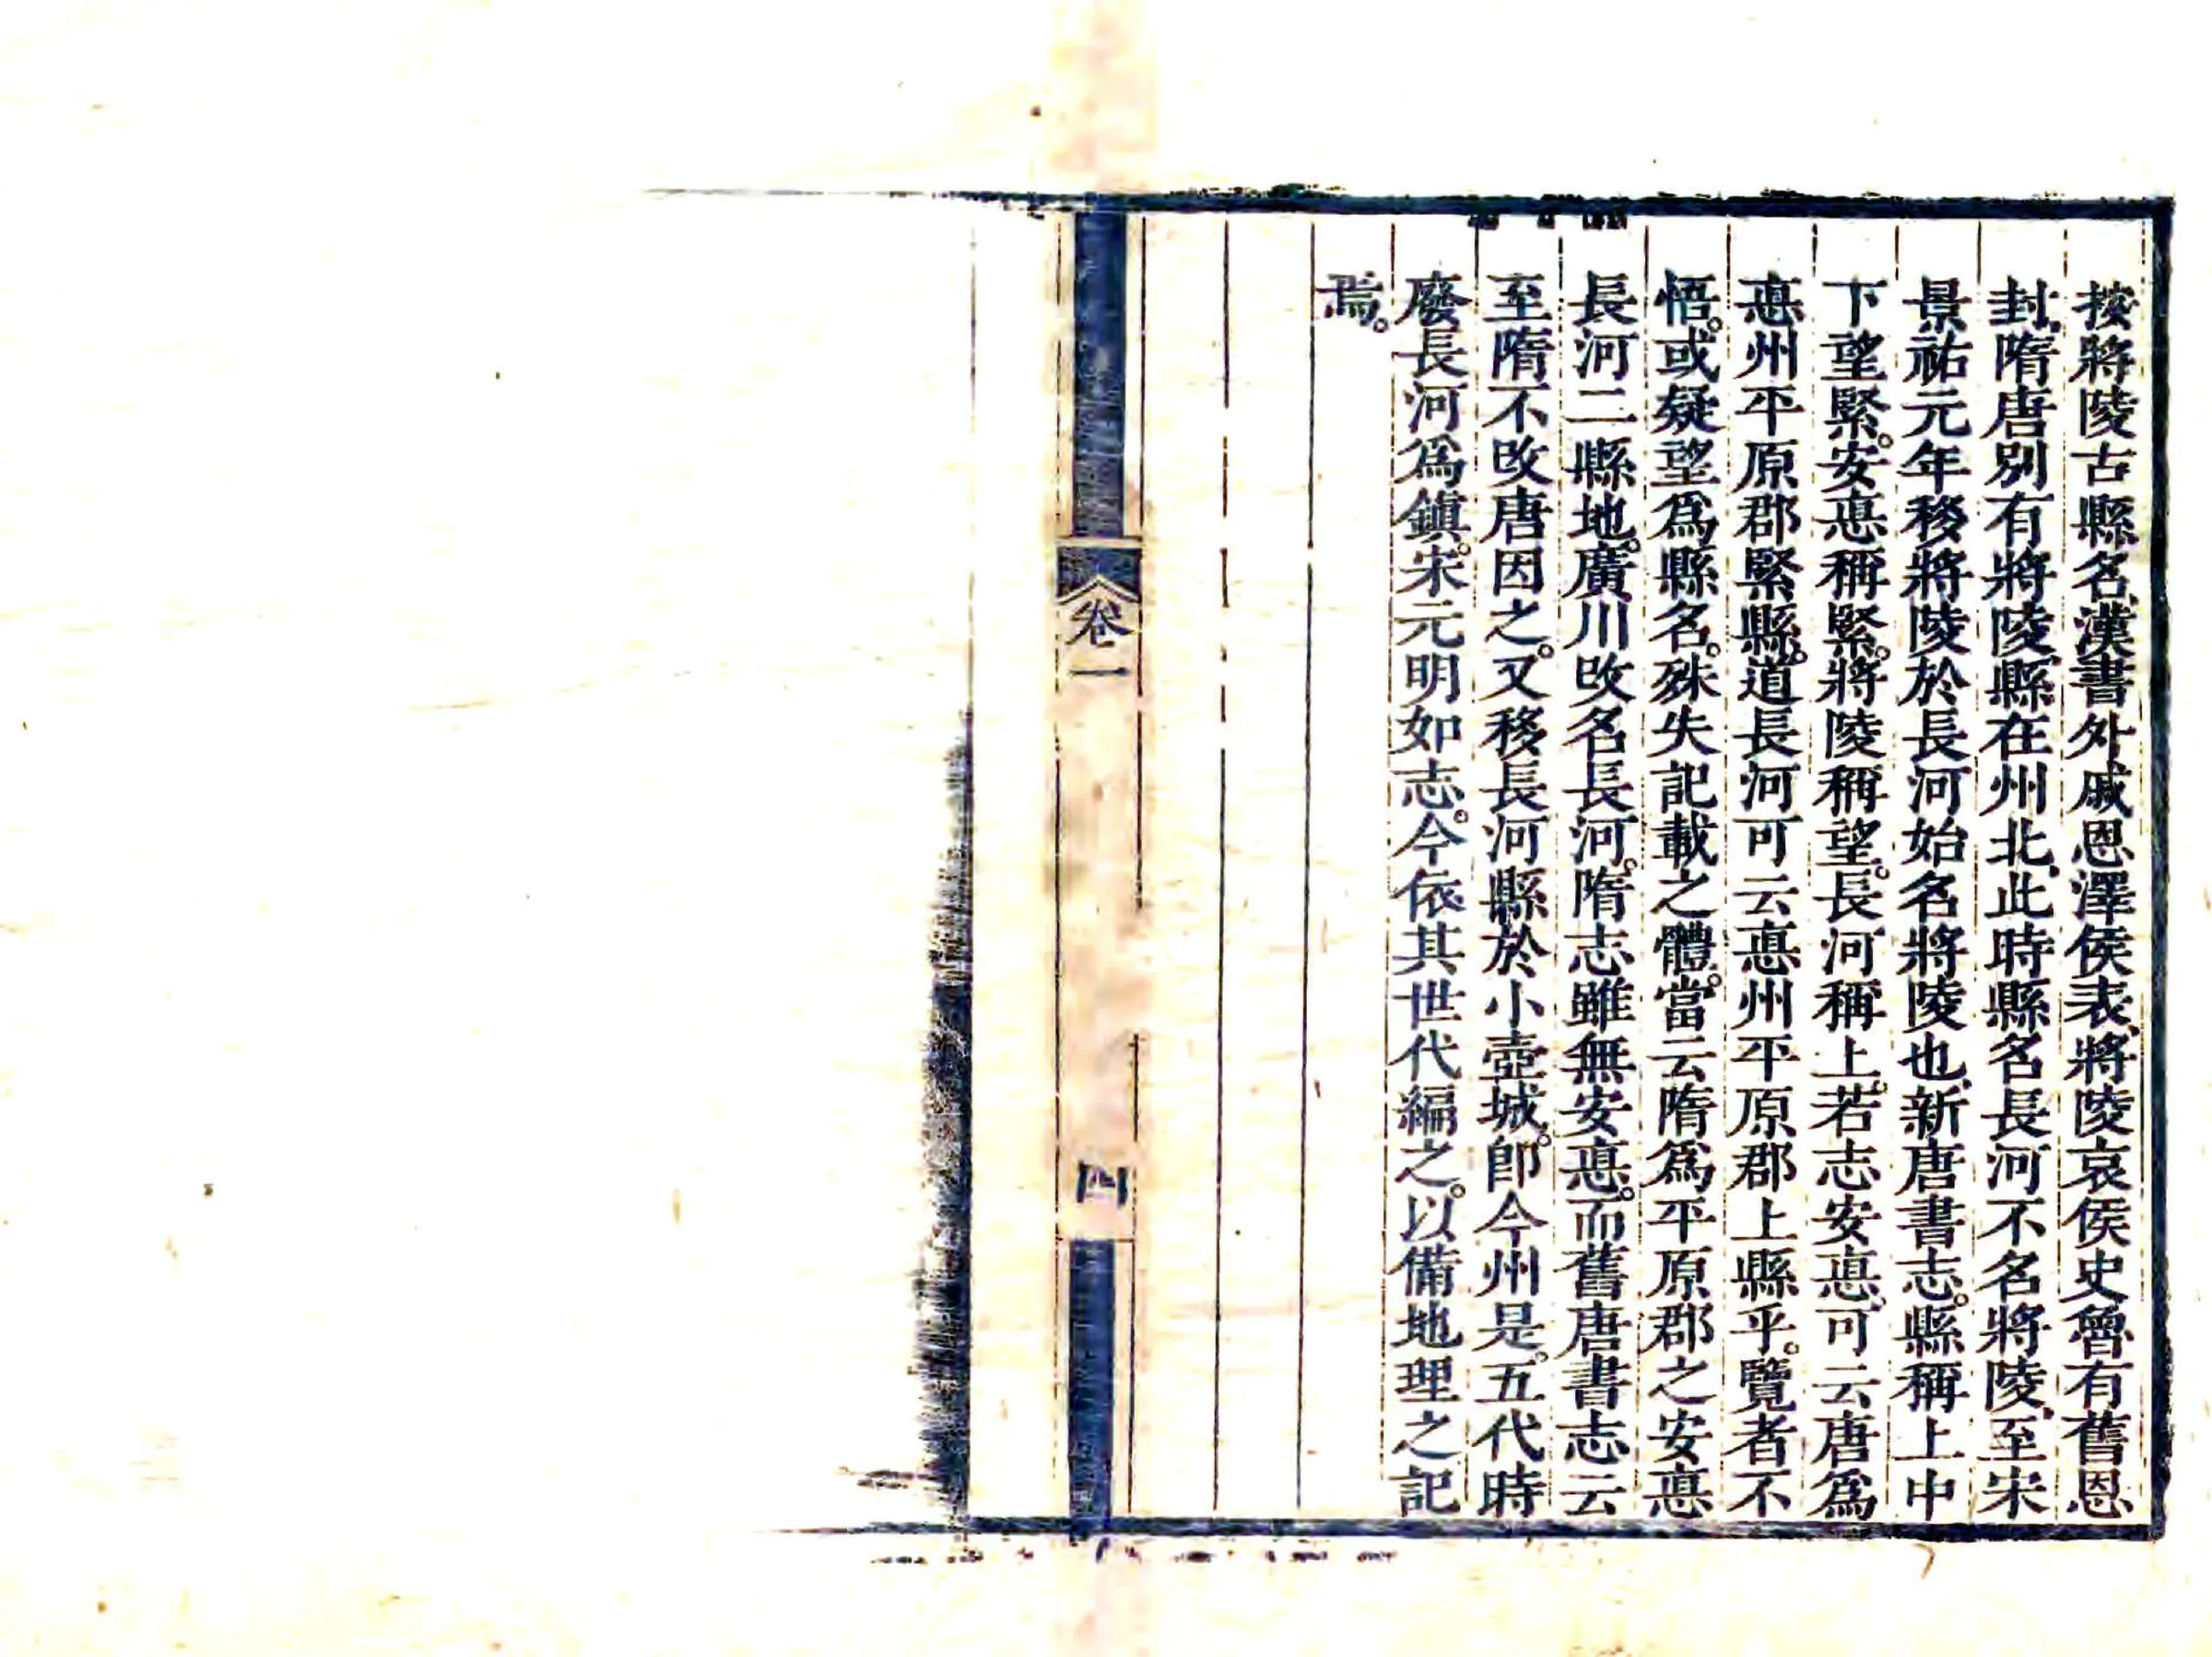 按將陵古縣名漢書外戚恩澤侯表將陵哀侯史曾有舊恩
封隋唐別有將陵縣在州北此時縣名長河不名將陵至宋
景祐元年移將陵於長河始名將陵也新唐書志。縣稱上中
下望緊。安悳稱緊。將陵稱望。長河稱上。若志安悳可云唐爲
悳州平原郡緊縣。道長河可云悳州平原郡上縣乎。覽者不
悟。或疑望爲縣名。殊失記載之體。當云隋爲平原郡之安悳
長河二縣地。廣川改名長河。隋志雖無安悳。而舊唐書志云
至隋不改唐因之。又移長河縣於小壺城。卽今州是。五代時
廢長河爲鎮。宋元明如志。今依其世代編之。以備地理之記
焉。
卷一
四